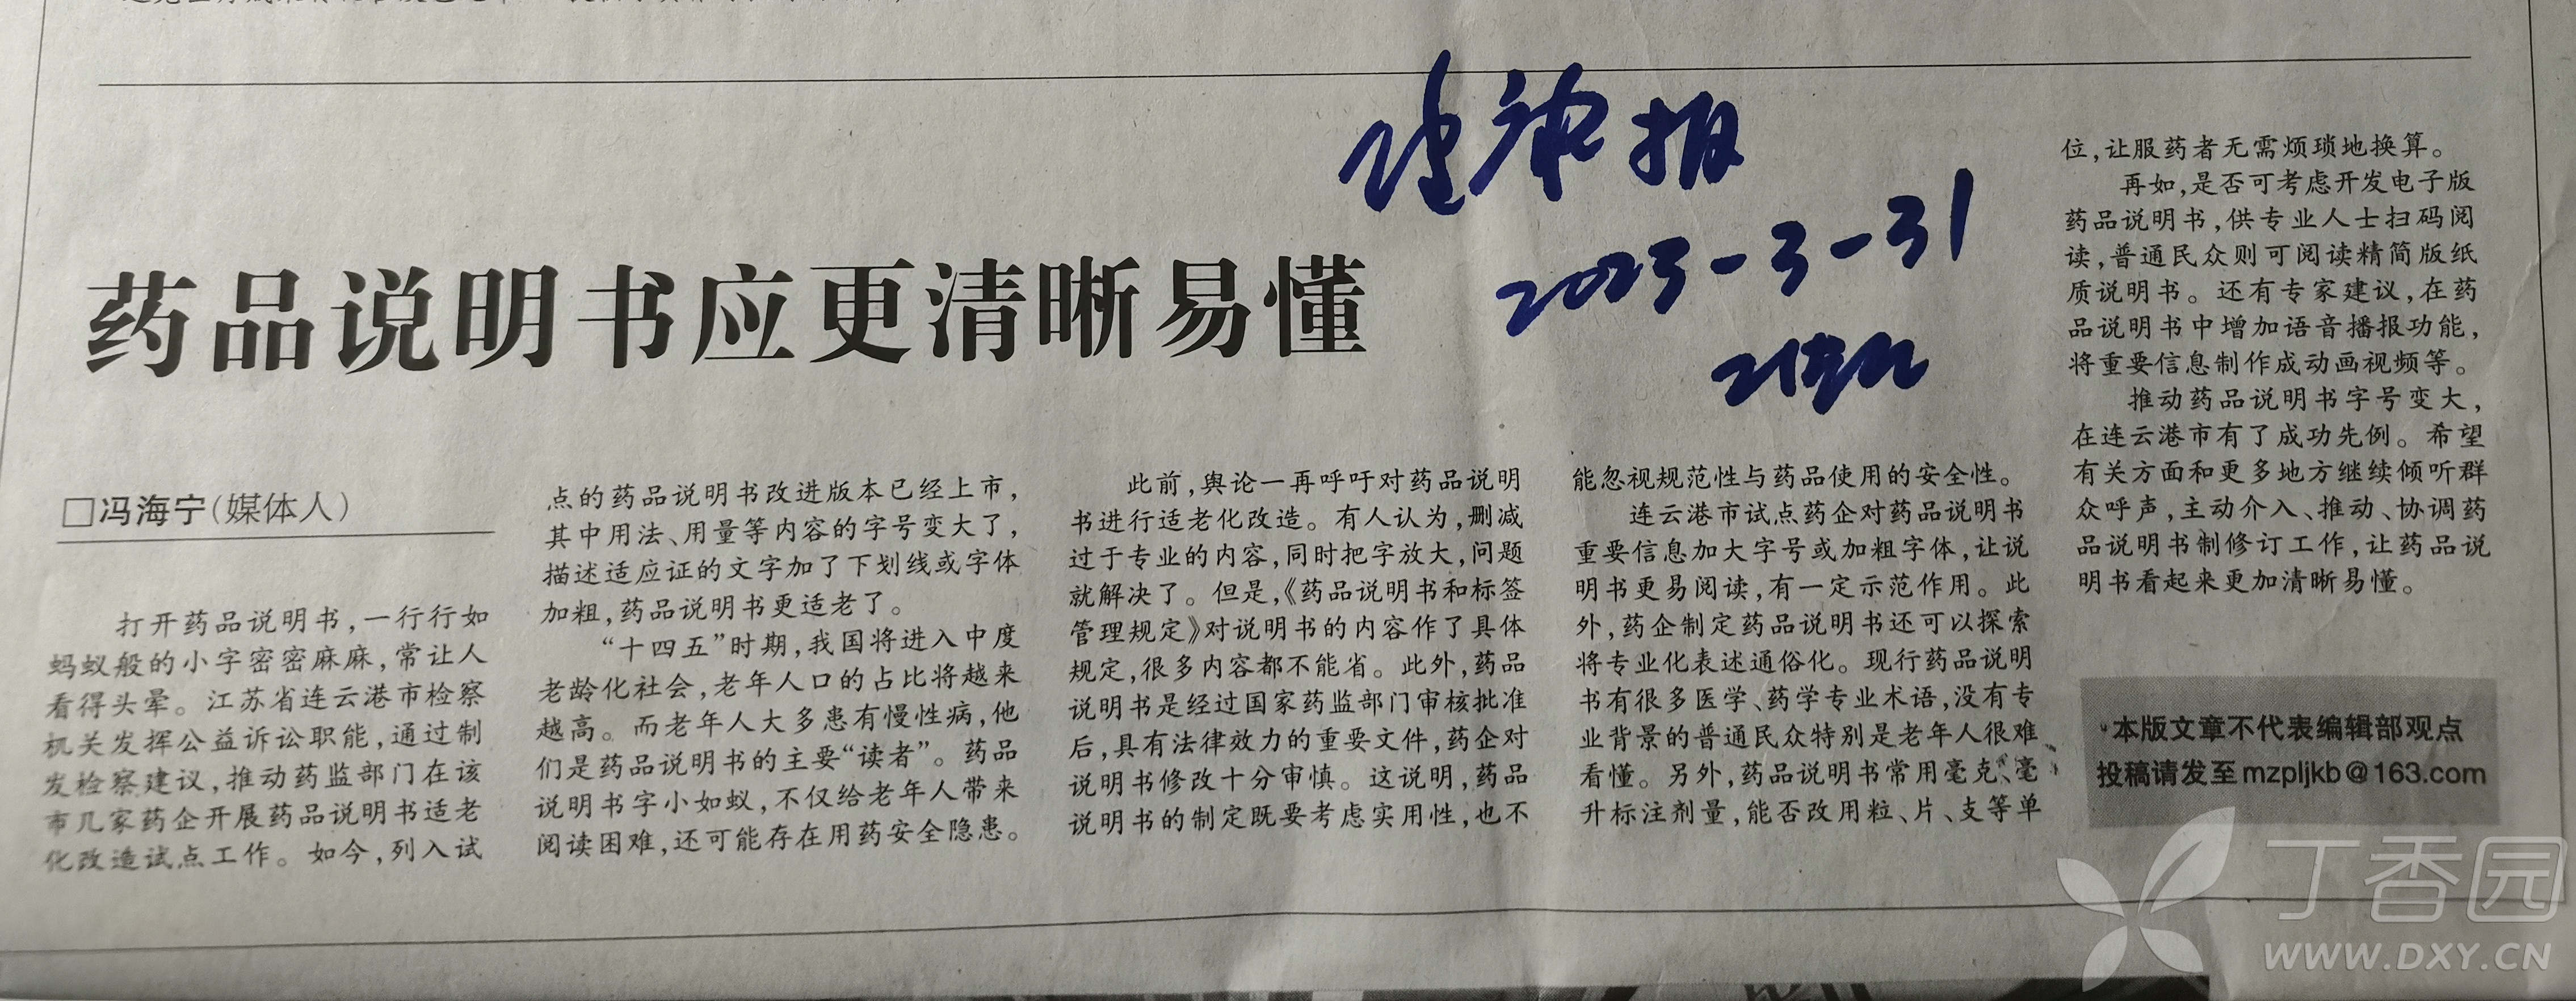 药品说明书应更清晰易懂
报
2023-3-31
□冯海宁(媒体人)
打开药品说明书,一行行如
蚂蚁般的小字密密麻麻,常让人
看得头晕。江苏省连云港市检察
机关发挥公益诉讼职能,通过制
发检察建议,推动药监部门在该
市几家药企开展药品说明书适老
化改造试点工作。如今,列入试
点的药品说明书改进版本已经上市,
其中用法、用量等内容的字号变大了,
描述适应证的文字加了下划线或字体
加粗,药品说明书更适老了。
“十四五”时期,我国将进入中度
老龄化社会,老年人口的占比将越来
越高。而老年人大多患有慢性病,他
们是药品说明书的主要“读者”。药品
说明书字小如蚁,不仅给老年人带来
阅读困难,还可能存在用药安全隐患。
此前,舆论一再呼吁对药品说明
书进行适老化改造。有人认为,删减
过于专业的内容,同时把字放大,问题
就解决了。但是,《药品说明书和标签
管理规定》对说明书的内容作了具体
规定,很多内容都不能省。此外,药品
说明书是经过国家药监部门审核批准
后,具有法律效力的重要文件,药企对
说明书修改十分审慎。这说明,药品
说明书的制定既要考虑实用性,也不
能忽视规范性与药品使用的安全性。
连云港市试点药企对药品说明书
重要信息加大字号或加粗字体,让说
明书更易阅读,有一定示范作用。此
外,药企制定药品说明书还可以探索
将专业化表述通俗化。现行药品说明
书有很多医学、药学专业术语,没有专
业背景的普通民众特别是老年人很难
看懂。另外,药品说明书常用毫克、毫
升标注剂量,能否改用粒、片、支等单
位,让服药者无需烦琐地换算。
再如,是否可考虑开发电子版
药品说明书,供专业人士扫码阅
读,普通民众则可阅读精简版纸
质说明书。还有专家建议,在药
品说明书中增加语音播报功能,
将重要信息制作成动画视频等。
推动药品说明书字号变大,
在连云港市有了成功先例。希望
有关方面和更多地方继续倾听群
众呼声,主动介入、推动、协调药
品说明书制修订工作,让药品说
明书看起来更加清晰易懂。
本版文章不代表编辑部观点
投稿请发至mzpljkb@163.com
丁香园
WWW.DXY.CN